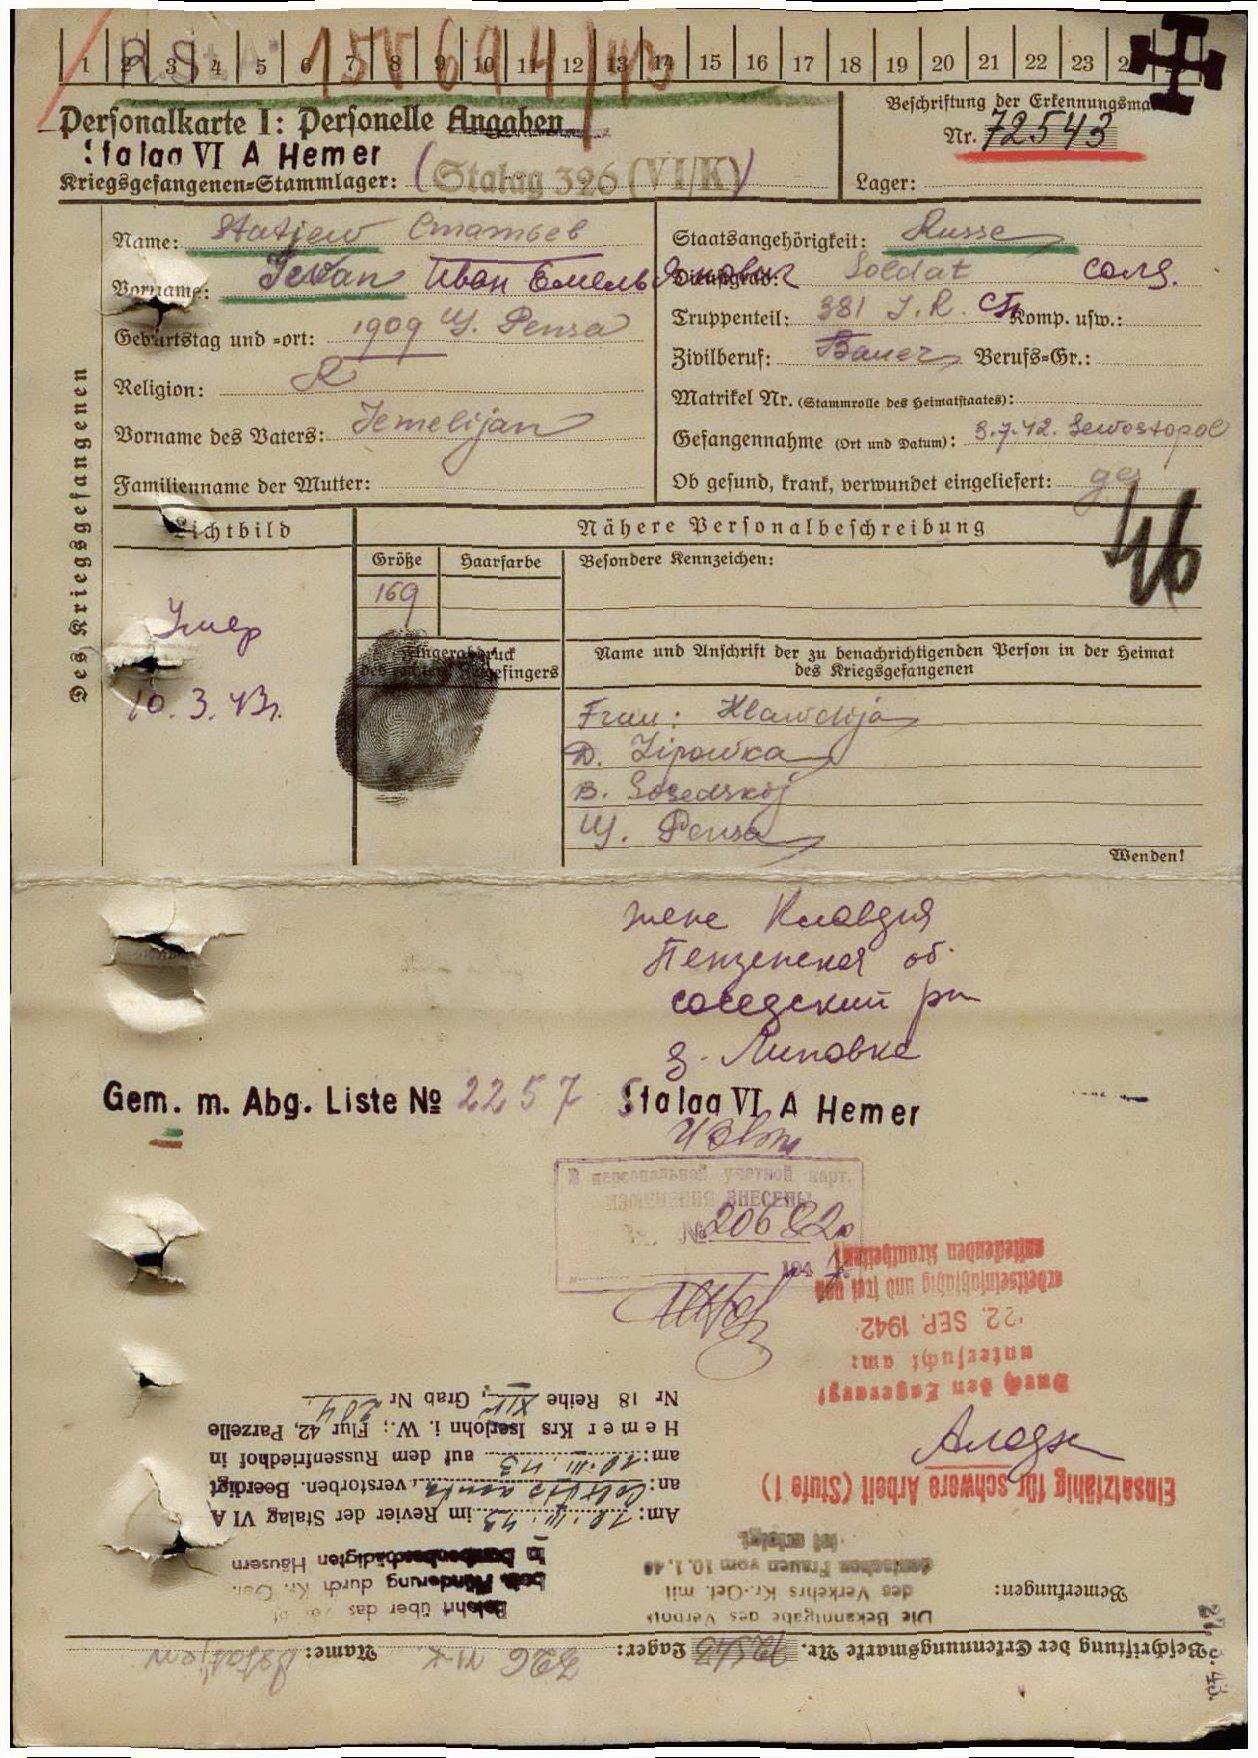 1 2 3 4 5 6 7 8 9 10 11 12 13 14 15 16 17 18 19 20 21 22 23
Personalkarte I: Personelle Angaben
Beschriftung der Erkennungsma
Nr. 72543
Stalag VI A Hemer
Kriegsgefangenen-Stammlager: (Stalag 326 (VI/K)
Lager:
Des Kriegsgefangenen
Name: Statjew Статьев
Vorname: Iewan Иван Емельянович
Geburtstag und -ort: 1909 Pensa
Religion: R
Vorname des Vaters: Jemelijan
Familienname der Mutter:
Staatsangehörigkeit: Russe
Dienstgrad: Soldat солд.
Truppenteil: 381 I.R. Komp. usw.:
Zivilberuf: Bauer Berufs-Gr.:
Matrikel Nr. (Stammrolle des Heimatstaates):
Gefangennahme (Ort und Datum): 3.7.42. Sewostopol
Ob gesund, krank, verwundet eingeliefert: ges
46
Lichtbild
Nähere Personalbeschreibung
Größe Haarfarbe Besondere Kennzeichen:
169
Умер
10.3.43г.
Fingerabdruck
Name und Anschrift der zu benachrichtigenden Person in der Heimat
des Kriegsgefangenen
Frau: Klawdija
D. Lipowka
B. Sosedskoj
Pensa
Wenden!
жене Клавдия
Пензенская об.
соседский рн
д. Липовка
Gem. m. Abg. Liste № 2257 Stalag VI A Hemer
В персональной учетной карт.
ИЗМЕНЕНИЯ ВНЕСЕНЫ
№ 20682
194
arbeitseinsatzfähig und frei von
ansteckenden Krankheiten!
22. SEP. 1942
untersucht am:
Durch den Lagerarzt
Einsatzfähig für schwere Arbeit (Stufe 1)
Nr 18 Reihe XIV, Grab Nr 204
Hemer Krs Iserlohn i. W.: Flur 42, Parzelle
am: 10.III.43 auf dem Russenfriedhof in
an: verstorben. Beerdigt
Am: 10.III.43 im Revier der Stalag VI A
in bombenbeschädigten Häusern
bei Plünderung durch Kr. Gef.
Belehrt über das
ist erfolgt.
deutschen Frauen vom 10.1.40
des Verkehrs Kr.-Gef. mit
Die Bekanntgabe des Verbots
Bemerkungen:
Beschriftung der Erkennungsmarke Nr. 72543 Lager: 326 VI-K Name: Statjew
27.3.43.